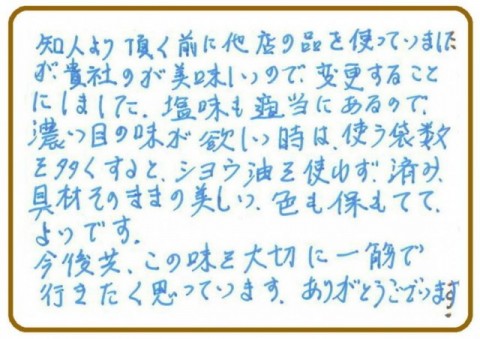 知人より頂く前に他店の品を使っていました
が、貴社のが美味しいので、変更すること
にしました。塩味も適当にあるので、
濃い目の味が欲しい時は、使う袋数
を多くすると、シヨウ油を使わず、済み、
具材そのままの美しい、色も保もてて、
よいです。
今後共、この味を大切に一筋で
行きたく思っています。ありがとうございます!